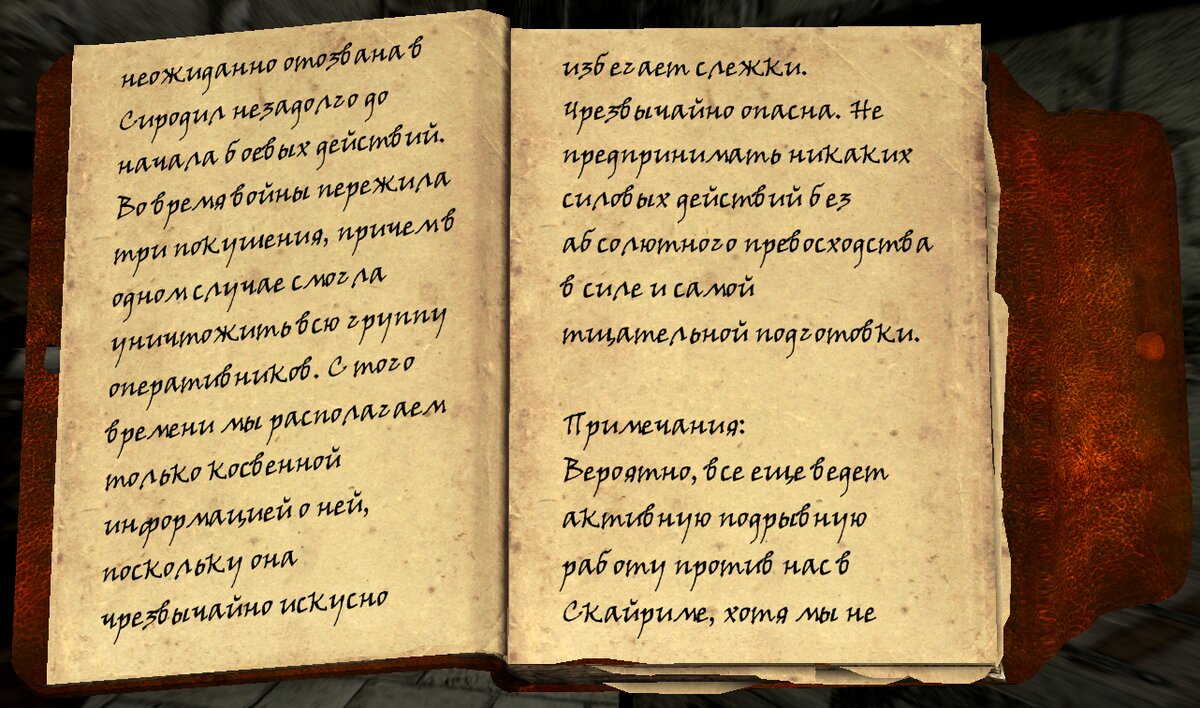 неожиданно отозвана в
Сиродил незадолго до
начала боевых действий.
Во время войны пережила
три покушения, причем в
одном случае смогла
уничтожить всю группу
оперативников. С того
времени мы располагаем
только косвенной
информацией о ней,
поскольку она
чрезвычайно искусно
избегает слежки.
Чрезвычайно опасна. Не
предпринимать никаких
силовых действий без
абсолютного превосходства
в силе и самой
тщательной подготовки.
Примечания:
Вероятно, все еще ведет
активную подрывную
работу против нас в
Скайриме, хотя мы не